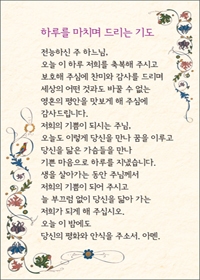 하루를 마치며 드리는 기도
전능하신 주 하느님,
오늘 이 하루 저희를 축복해 주시고
보호해 주심에 찬미와 감사를 드리며
세상의 어떤 것과도 바꿀 수 없는
영혼의 평안을 맛보게 해 주심에
감사드립니다.
저희의 기쁨이 되시는 주님,
오늘도 이렇게 당신을 만나 꿈을 이루고
당신을 닮은 가슴들을 만나
기쁜 마음으로 하루를 지냈습니다.
생을 살아가는 동안 주님께서
저희의 기쁨이 되어 주시고
늘 부끄럼 없이 당신을 닮아 가는
저희가 되게 해 주십시오.
오늘 이 밤에도
당신의 평화와 안식을 주소서. 아멘.